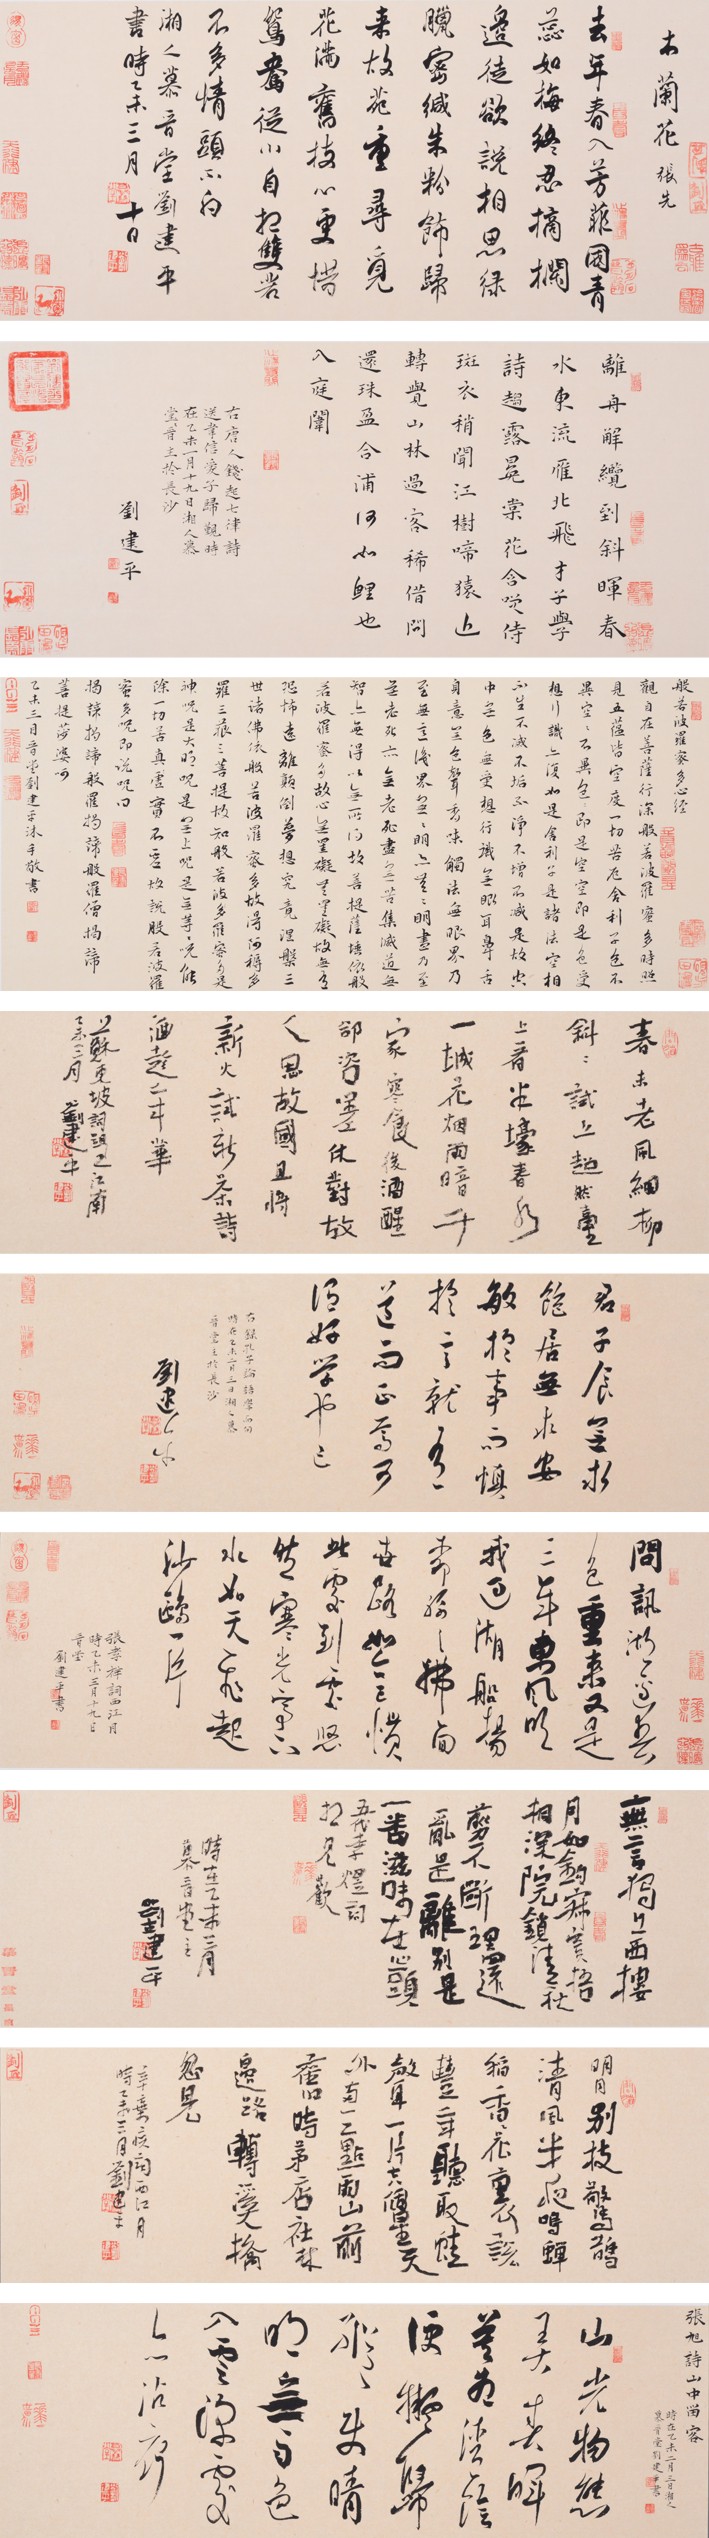 木蘭花 張先
去年春入芳菲國青
蕊如梅終忍摘闌
邊徒欲說相思綠
臘密緘朱粉飾歸
來故苑重尋覓
花滿舊枝心更惜
鴛鴦從小自相雙若
不多情頭不白
湘人慕晉堂劉建平
書時乙未三月
十日
離舟解纜到斜暉春
水東流雁北飛才子學
詩趨露冕棠花含笑侍
斑衣稍聞江樹啼猿近
轉覺山林過客稀借問
還珠盈合浦何如鯉也
入庭闈
右唐人錢起七律詩
送韋信愛子歸觀時
在乙未一月十九日湘人慕
晉堂主於長沙
劉建平
般若波羅蜜多心經
觀自在菩薩行深般若波羅蜜多時照
見五蘊皆空度一切苦厄舍利子色不
異空空不異色色即是空空即是色受
想行識亦復如是舍利子是諸法空相
不生不滅不垢不淨不增不減是故空
中無色無受想行識無眼耳鼻舌
身意無色聲香味觸法無眼界乃
至無意識界無無明亦無無明盡乃至
無老死亦無老死盡無苦集滅道無
智亦無得以無所得故菩提薩埵依般
若波羅蜜多故心無罣礙無罣礙故無有
恐怖遠離顛倒夢想究竟涅槃三
世諸佛依般若波羅蜜多故得阿耨多
羅三藐三菩提故知般若波羅蜜多是
大神咒是大明咒是無上咒是無等等咒能
除一切苦真實不虛故說般若波羅
蜜多咒即說咒曰
揭諦揭諦般羅揭諦般羅僧揭諦
菩提莎婆呵
乙未三月晉堂劉建平沐手敬書
春未老風細柳
斜斜試上超然臺
上看半壕春水
一城花煙雨暗千
家寒食後酒醒
卻咨嗟休對故
人思故國且將
新火試新茶詩
酒趁年華
蘇東坡詞望江南
乙未三月劉建平
君子食無求
飽居無求安
敏於事而慎
於言就有
道而正焉可
謂好學也已
右錄孔子論語學而句
時在乙未二月三日湘人慕
晉堂主於長沙
劉建平
問訊湖邊春
色重來又是
三年東風吹
我過湖船楊
柳絲絲拂面
世路如今已慣
此心到處悠
然寒光亭下
水如天飛起
沙鷗一片
張孝祥詞西江月
時乙未三月十九日
晉堂
劉建平書
無言獨上西樓
月如鉤寂寞梧
桐深院鎖清秋
剪不斷理還
亂是離別是
一番滋味在心頭
五代李煜詞
相見歡
時在乙未三月
慕晉堂主
劉建平
明月別枝驚鵲
清風半夜鳴蟬
稻香花裏說
豐年聽取蛙
聲一片七八個星天
外兩三點雨山前
舊時茅店社林
邊路轉溪橋
忽見
辛棄疾詞西江月
時乙未三月劉建平
張旭詩山中留客
時在乙未二月三日湘人
慕晉堂劉建平書
山光物態
弄春暉
莫為輕陰
便擬歸
縱使晴
明無雨色
入雲深處
亦沾衣